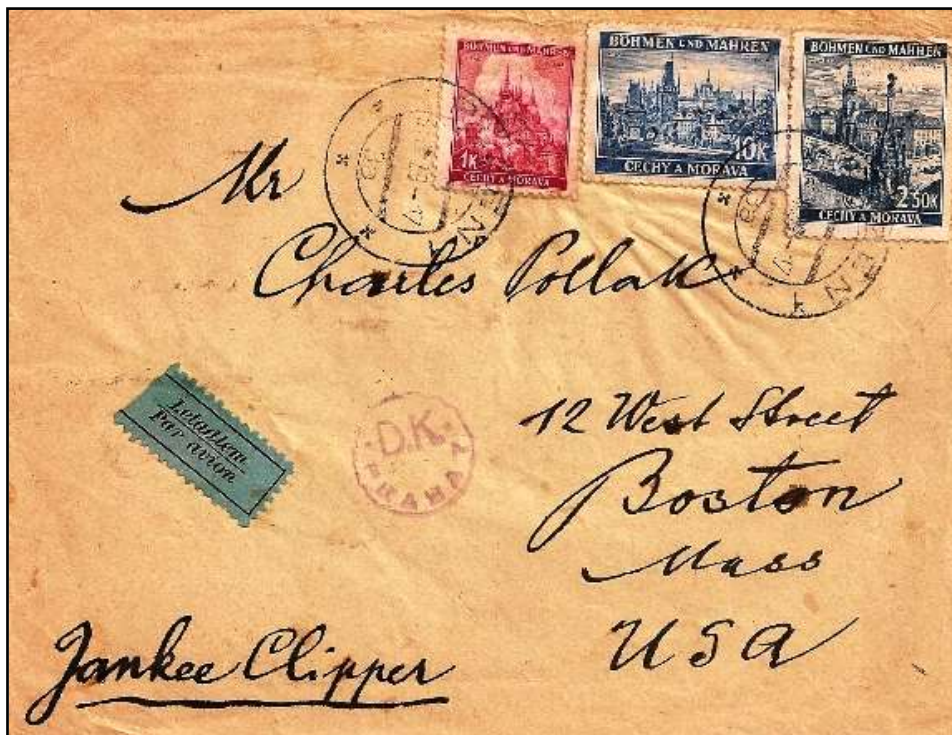 BÖHMEN UND MÄHREN
1K
ČECHY A MORAVA
BÖHMEN UND MÄHREN
10K
ČECHY A MORAVA
BÖHMEN UND MÄHREN
2·50K
ČECHY A MORAVA
Mr
Charles Pollak
Letadlem
Par avion
D.K.
PRAHA 7
12 West Street
Boston
Mass
USA
Jankee Clipper